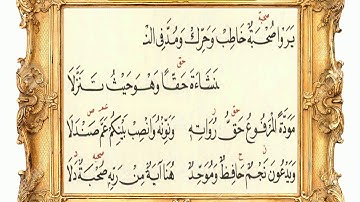 صحبة
يَرَوْا صُحْبَةٌ خَاطِبْ وَحَرِّكْ وَمُدَّ فِي النْـ
حق
نَشَاءَةَ حَقًّا وَهْوَ حَيْثُ تَنَزَّلَا
حق ر عم ص
مَوَدَّةً الْمَرْفُوعُ حَقُّ رُوَاتِهِ وَنَوِّنْهُ وَانْصِبْ بَيْنَكُمْ عَمَّ صَنْدَلَا
ن ح صحبة د
وَيَدْعُونَ نَجْمٌ حَافِظٌ وَمُوَحِّدٌ هُنَا آيَةٌ مِنْ رَبِّهِ صُحْبَةٌ دَلَا